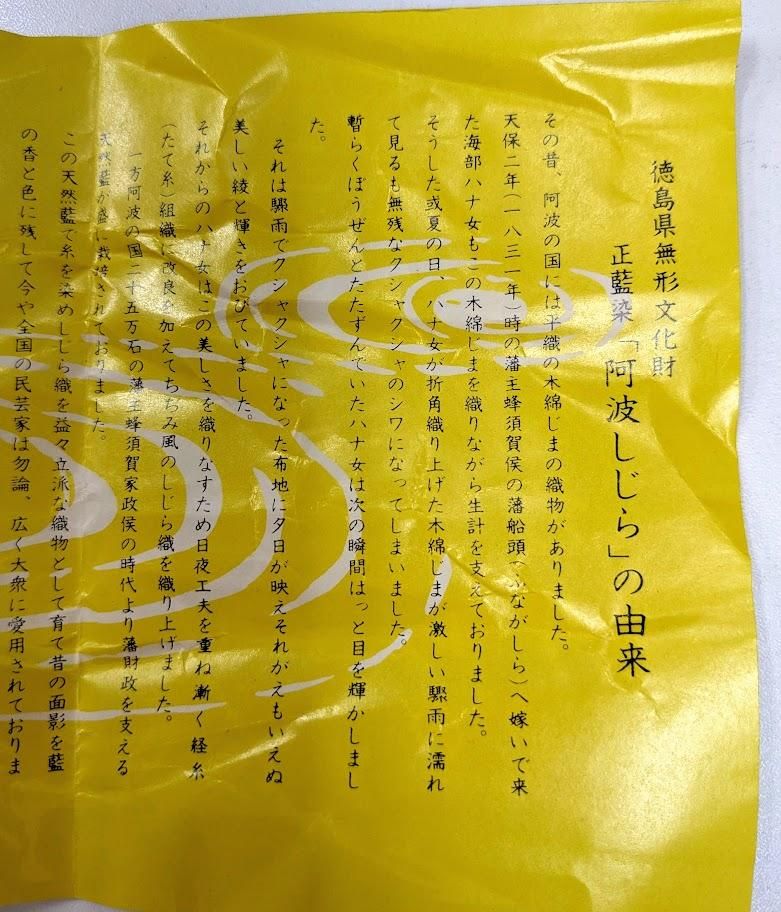 徳島県無形文化財
正藍染「阿波しじら」の由来
その昔、阿波の国には平織の木綿じまの織物がありました。
天保二年(一八三一年)時の藩主蜂須賀侯の藩船頭(ふながしら)へ嫁いで来
た海部ハナ女もこの木綿じまを織りながら生計を支えておりました。
そうした或夏の日、ハナ女が折角織り上げた木綿じまが激しい驟雨に濡れ
て見るも無残なクシャクシャのシワになってしまいました。
暫らくぼうぜんとたたずんでいたハナ女は次の瞬間はっと目を輝かしまし
た。
それは驟雨でクシャクシャになった布地に夕日が映えそれがえもいえぬ
美しい綾と輝きをおびていました。
それからのハナ女はこの美しさを織りなすため日夜工夫を重ね漸く経糸
(たて糸)組織に改良を加えてちぢみ風のしじら織を織り上げました。
一方阿波の国二十五万石の藩主蜂須賀家政侯の時代より藩財政を支える
天然藍が盛に栽培されておりました。
この天然藍で糸を染めしじら織を益々立派な織物として育て昔の面影を藍
の香と色に残して今や全国の民芸家は勿論、広く大衆に愛用されておりま